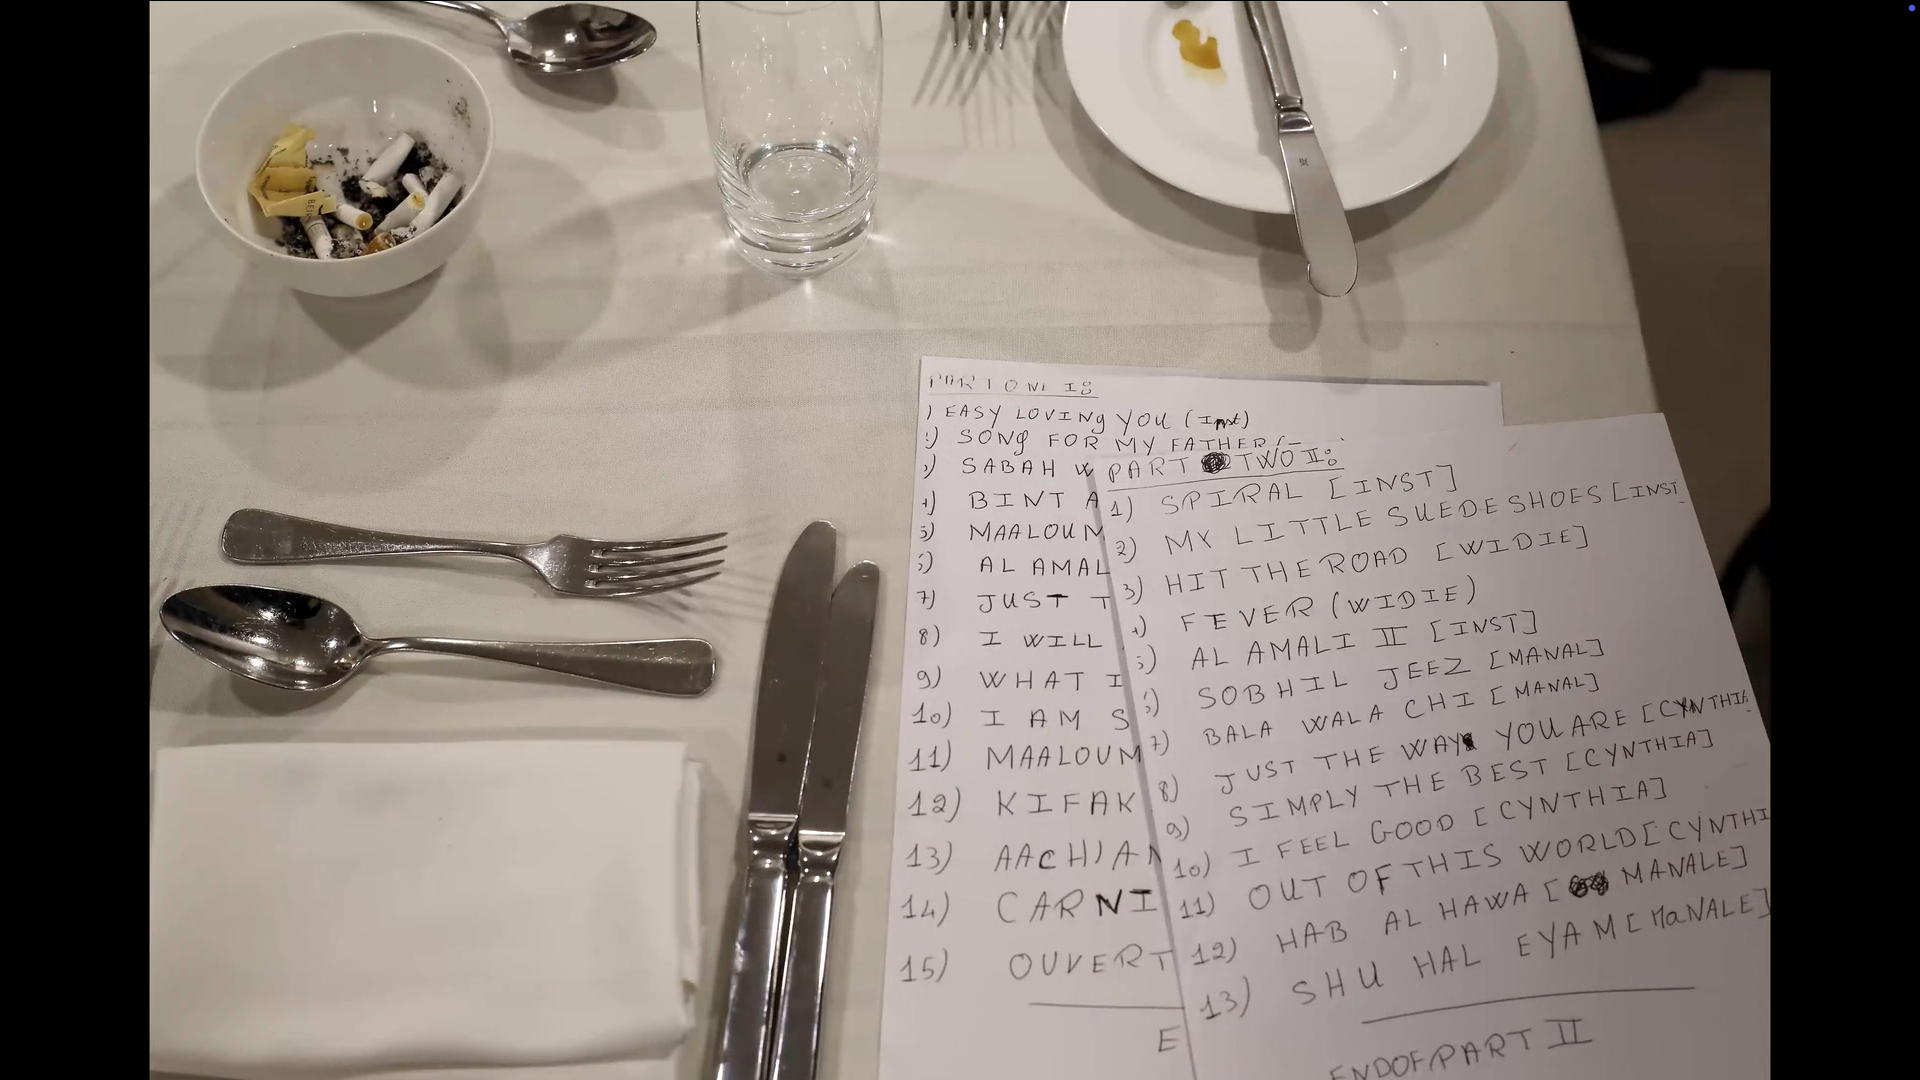 PART ONE I:
) EASY LOVING YOU (Inst)
) SONG FOR MY FATHER (
) SABAH W
) BINT A
5) MAALOUM
) AL AMAL
7) JUST T
8) I WILL
9) WHAT I
10) I AM S
11) MAALOUM
12) KIFAK
13) AACHIAN
14) CARNI
15) OUVERT
E
PART TWO II:
1) SPIRAL [INST]
2) MY LITTLE SUEDE SHOES [INST
3) HIT THE ROAD [WIDIE]
4) FEVER (WIDIE)
5) AL AMALI II [INST]
) SOBHIL JEEZ [MANAL]
7) BALA WALA CHI [MANAL]
8) JUST THE WAY YOU ARE [CYNTHIA
9) SIMPLY THE BEST [CYNTHIA]
10) I FEEL GOOD [CYNTHIA]
11) OUT OF THIS WORLD [CYNTHI
12) HAB AL HAWA [MANALE]
13) SHU HAL EYAM [MaNALE]
END OF PART II